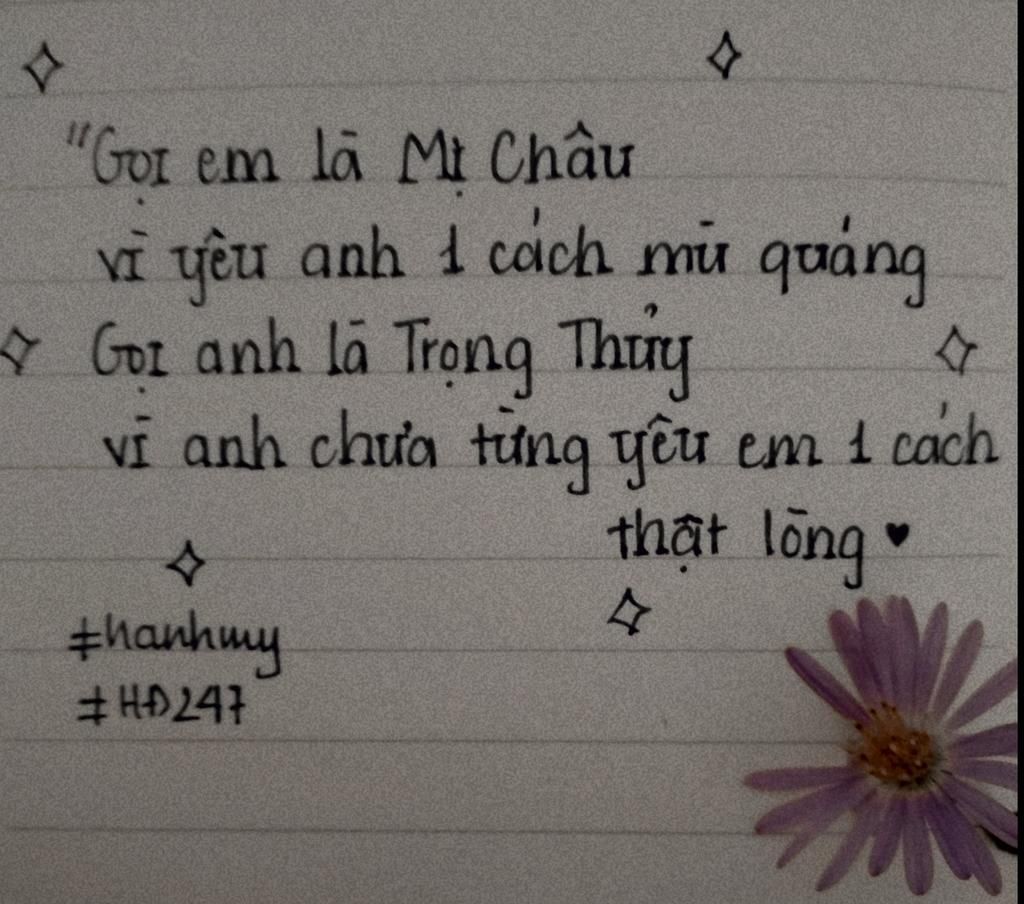 "Gọi em là Mị Châu
vì yêu anh 1 cách mù quáng
Gọi anh là Trọng Thủy
vì anh chưa từng yêu em 1 cách
thật lòng ♥
#hanhmy
#HĐ247